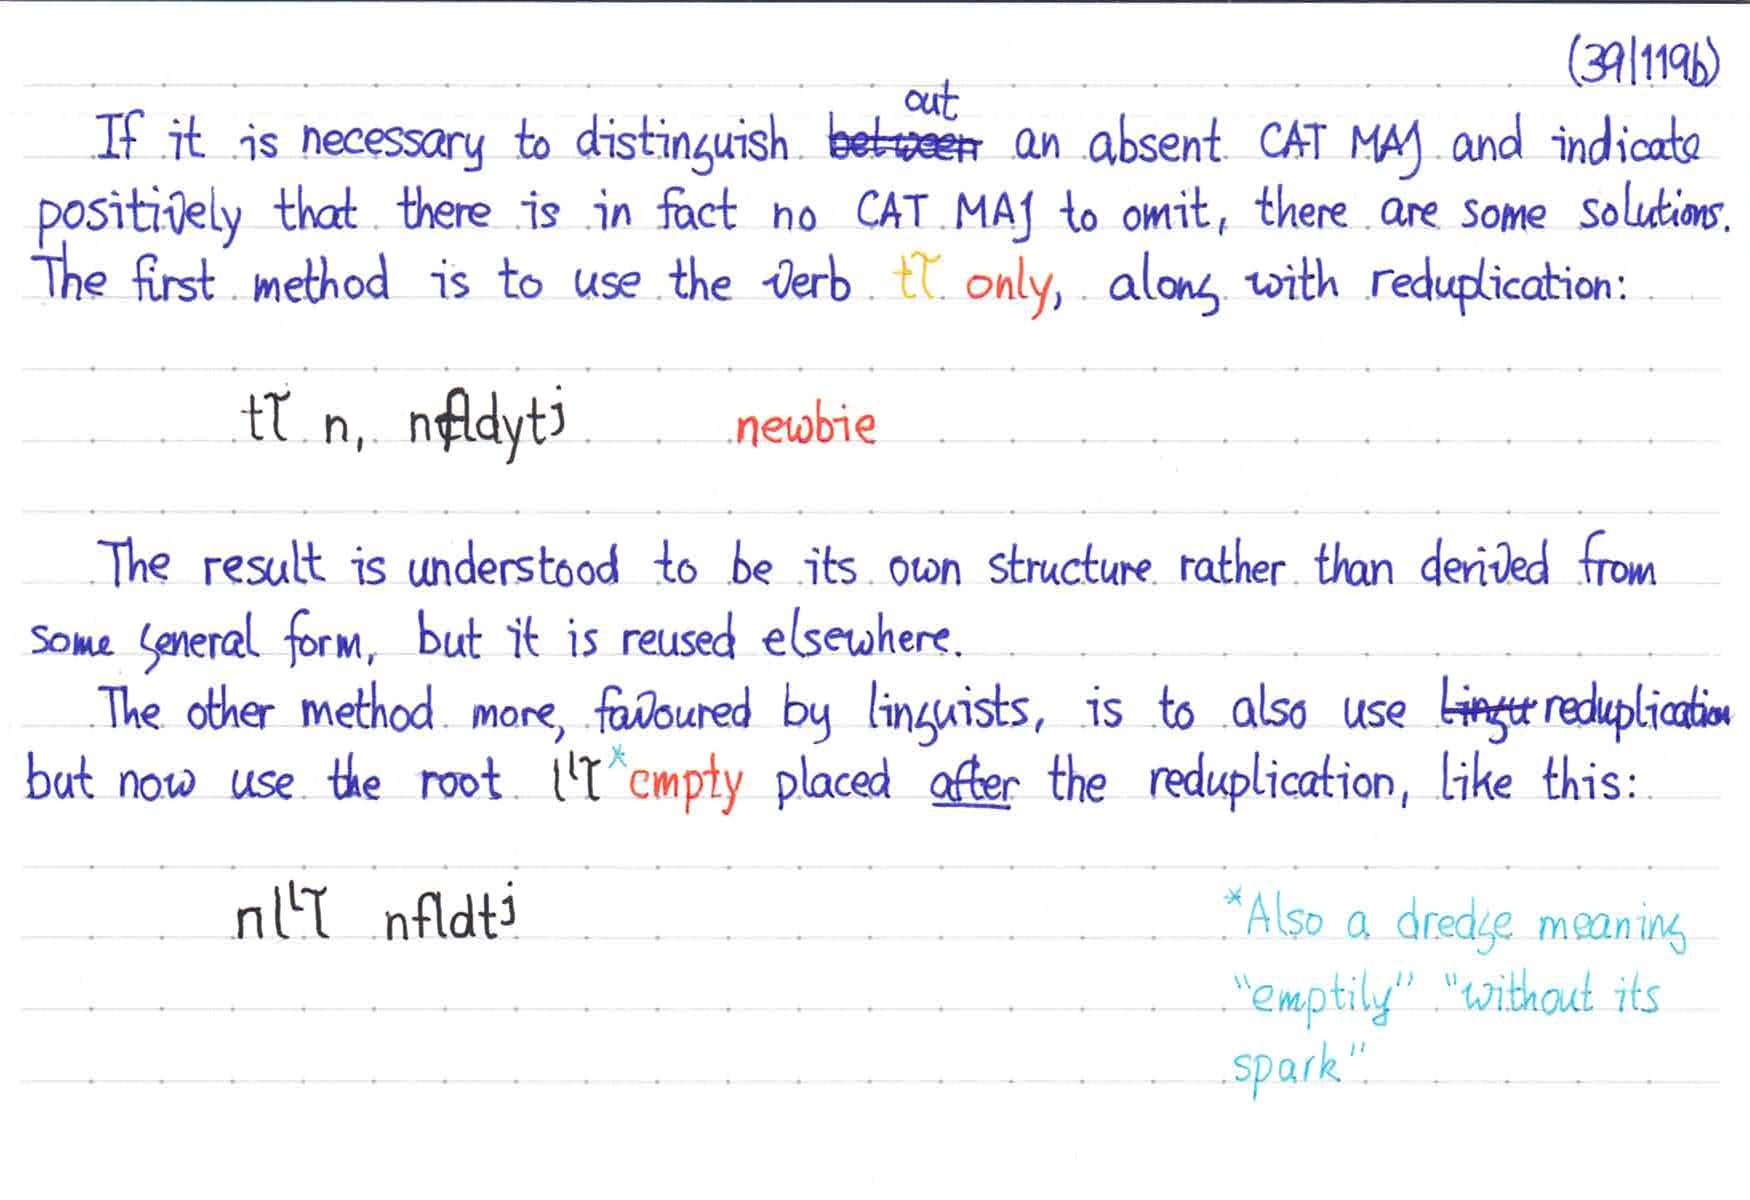 (39|119b)
If it is necessary to distinguish out an absent CAT MAJ and indicate
positively that there is in fact no CAT MAJ to omit, there are some solutions.
The first method is to use the verb tɭ̃ only, along with reduplication:
newbie
The result is understood to be its own structure rather than derived from
some general form, but it is reused elsewhere.
The other method more, favoured by linguists, is to also use reduplication
but now use the root *empty placed after the reduplication, like this:
*Also a dredge meaning
"emptily" "without its
spark"